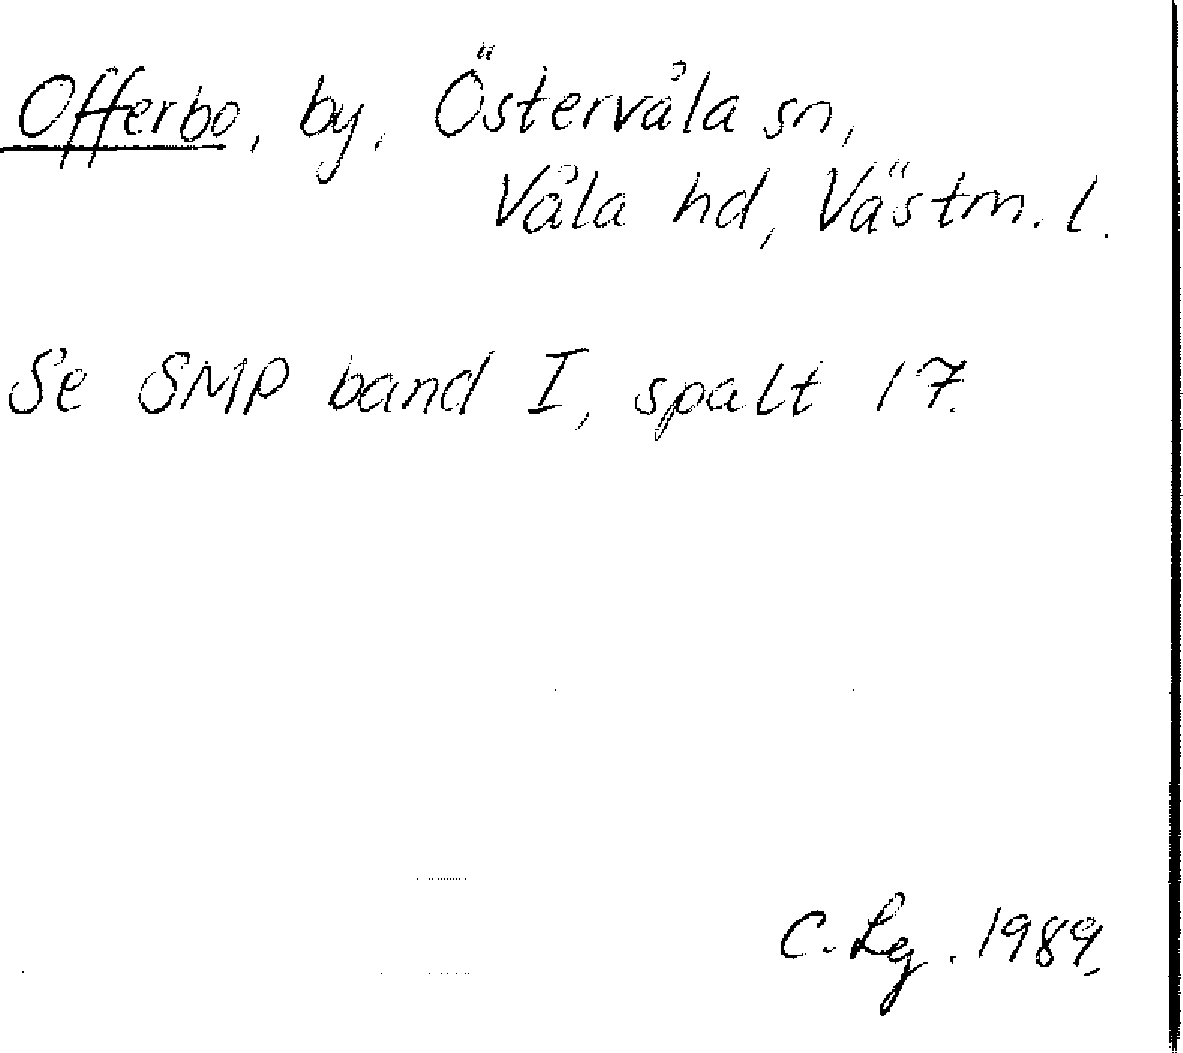 Offerbo, by, Östervåla sn,
Våla hd, Västm. l.
Se SMP band I, spalt 17.
C. Lg. 1989.